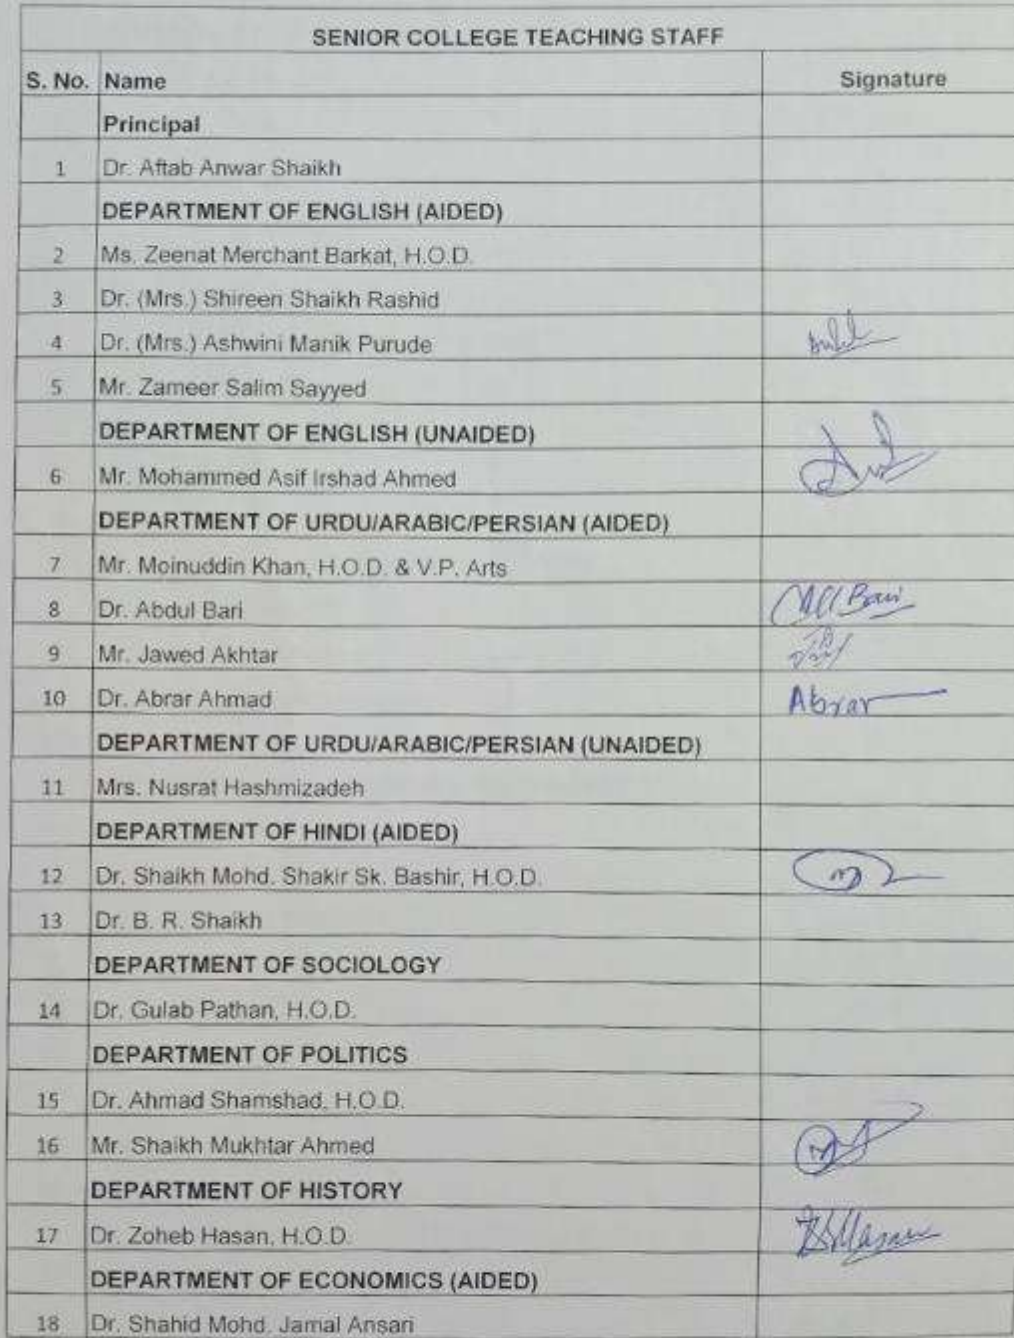 SENIOR COLLEGE TEACHING STAFF
S. No. Name Signature
Principal
1 Dr. Aftab Anwar Shaikh
DEPARTMENT OF ENGLISH (AIDED)
2 Ms. Zeenat Merchant Barkat, H.O.D.
3 Dr. (Mrs.) Shireen Shaikh Rashid
4 Dr. (Mrs.) Ashwini Manik Purude
5 Mr. Zameer Salim Sayyed
DEPARTMENT OF ENGLISH (UNAIDED)
6 Mr. Mohammed Asif Irshad Ahmed
DEPARTMENT OF URDU/ARABIC/PERSIAN (AIDED)
7 Mr. Moinuddin Khan, H.O.D. & V.P. Arts
8 Dr. Abdul Bari Bari
9 Mr. Jawed Akhtar
10 Dr. Abrar Ahmad Abrar
DEPARTMENT OF URDU/ARABIC/PERSIAN (UNAIDED)
11 Mrs. Nusrat Hashmizadeh
DEPARTMENT OF HINDI (AIDED)
12 Dr. Shaikh Mohd. Shakir Sk. Bashir, H.O.D.
13 Dr. B. R. Shaikh
DEPARTMENT OF SOCIOLOGY
14 Dr. Gulab Pathan, H.O.D.
DEPARTMENT OF POLITICS
15 Dr. Ahmad Shamshad, H.O.D.
16 Mr. Shaikh Mukhtar Ahmed
DEPARTMENT OF HISTORY
17 Dr. Zoheb Hasan, H.O.D.
DEPARTMENT OF ECONOMICS (AIDED)
18 Dr. Shahid Mohd. Jamal Ansari